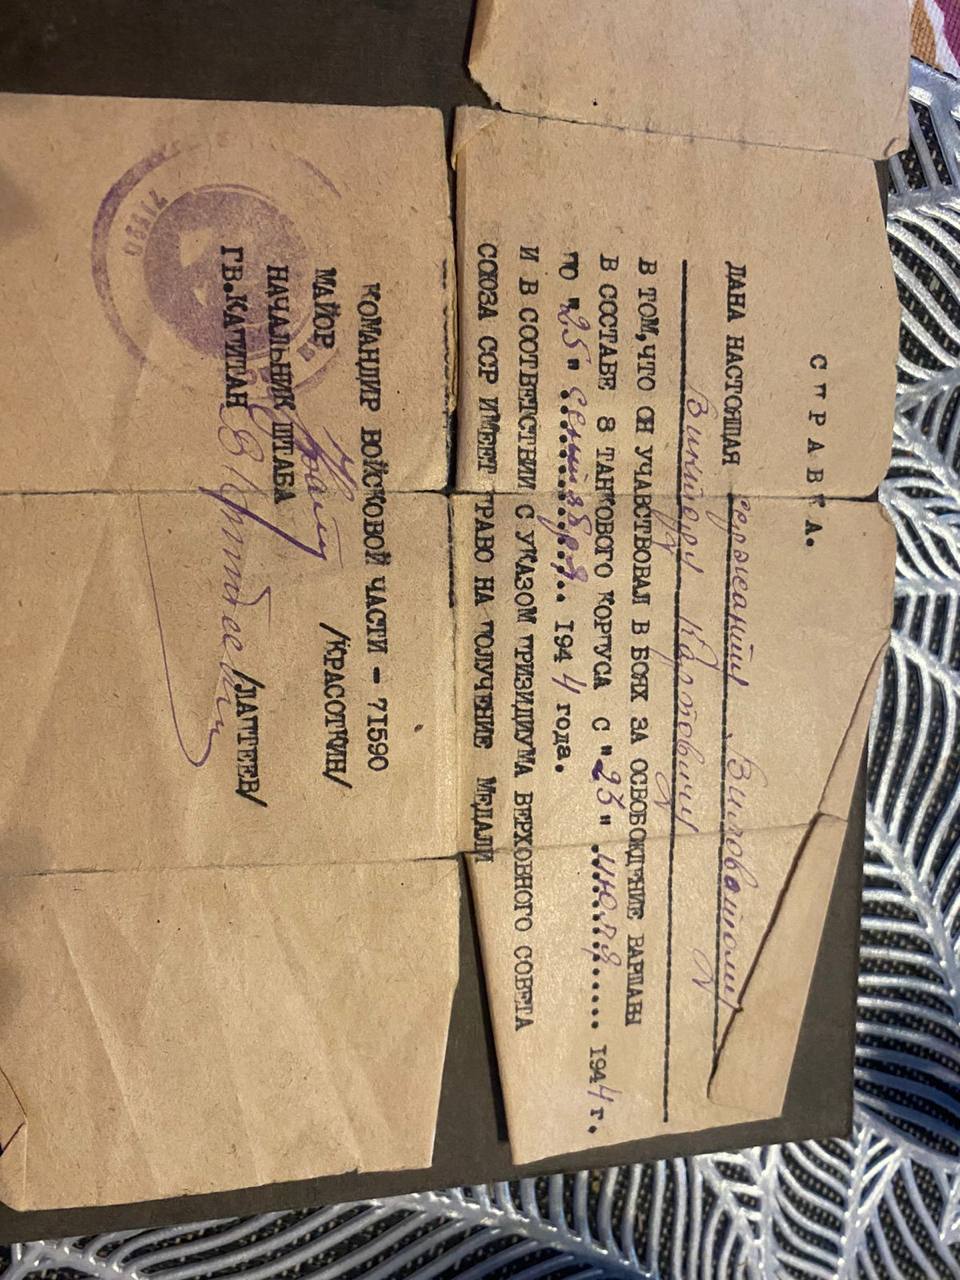 С П Р А В К А.
ДАНА НАСТОЯЩАЯ сержанту
Виктору Карповичу
В ТОМ,ЧТО ОН УЧАВСТВОВАЛ В БОЯХ ЗА ОСВОБОЖДЕНИЕ ВАРШАВЫ
В СОСТАВЕ 8 ТАНКОВОГО КОРПУСА С "23" июля...... 1944 г.
ПО "25" сентября... 1944 года.
И В СООТВЕТСТВИИ С УКАЗОМ ПРИЗИДИУМА ВЕРХОВНОГО СОВЕТА
СОЮЗА ССР ИМЕЕТ ПРАВО НА ПОЛУЧЕНИЕ МЕДАЛИ
КОМАНДИР ВОЙСКОВОЙ ЧАСТИ - 71590
МАЙОР /КРАСОТКИН/
НАЧАЛЬНИК ШТАБА
ГВ.КАПИТАН /ЛАПТЕЕВ/